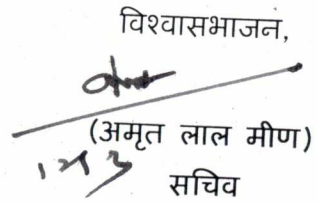 विश्वासभाजन,
(अमृत लाल मीण)
सचिव